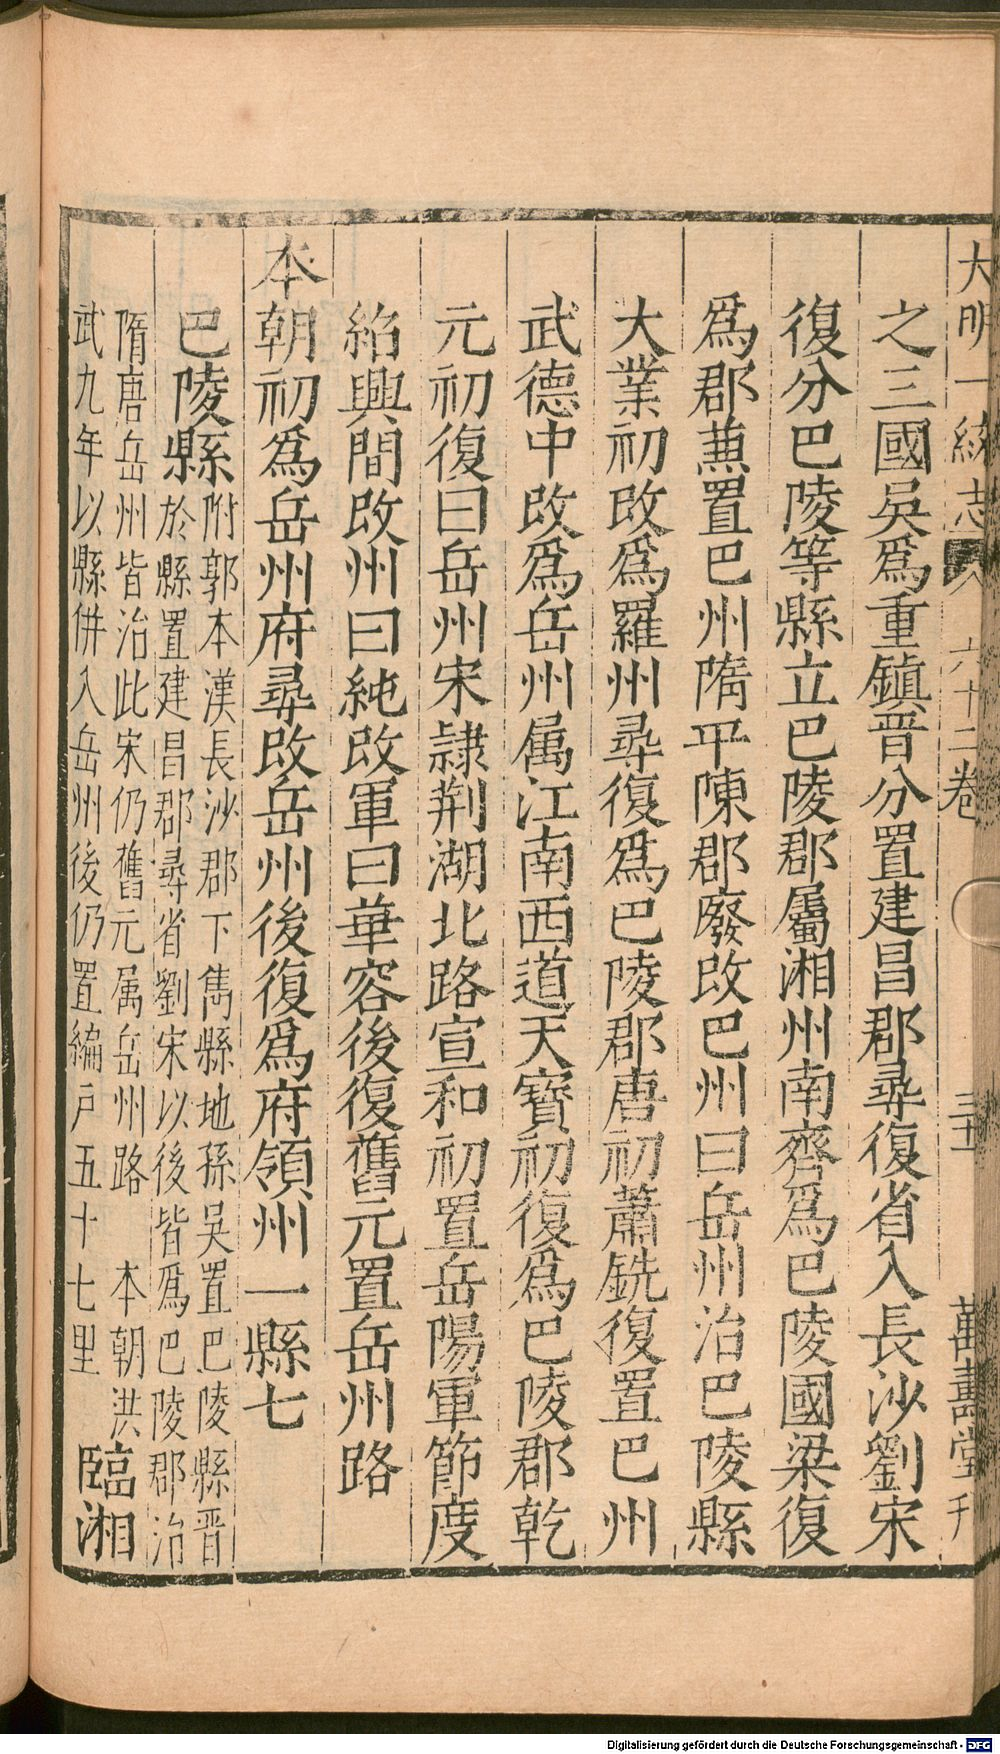 大明一統志 六十二卷 三十一 萬壽堂刊
之三國吳為重鎮晋分置建昌郡尋復省入長沙劉宋
復分巴陵等縣立巴陵郡屬湘州南齊為巴陵國梁復
為郡蒹置巴州隋平陳郡廢改巴州曰岳州治巴陵縣
大業初改為羅州尋復為巴陵郡唐初蕭銑復置巴州
武德中改為岳州属江南西道天寶初復為巴陵郡乾
元初復曰岳州宋隷荆湖北路宣和初置岳陽軍節度
紹興間改州曰純改軍曰華容後復舊元置岳州路
本朝初為岳州府尋改岳州後復為府領州一縣七
巴陵縣附郭本漢長沙郡下雋縣地孫吳置巴陵縣晋
於縣置建昌郡尋省劉宋以後皆為巴陵郡治
隋唐岳州皆治此宋仍舊元属岳州路 本朝洪
武九年以縣併入岳州後仍置編戶五十七里 臨湘
Digitalisierung gefördert durch die Deutsche Forschungsgemeinschaft - DFG